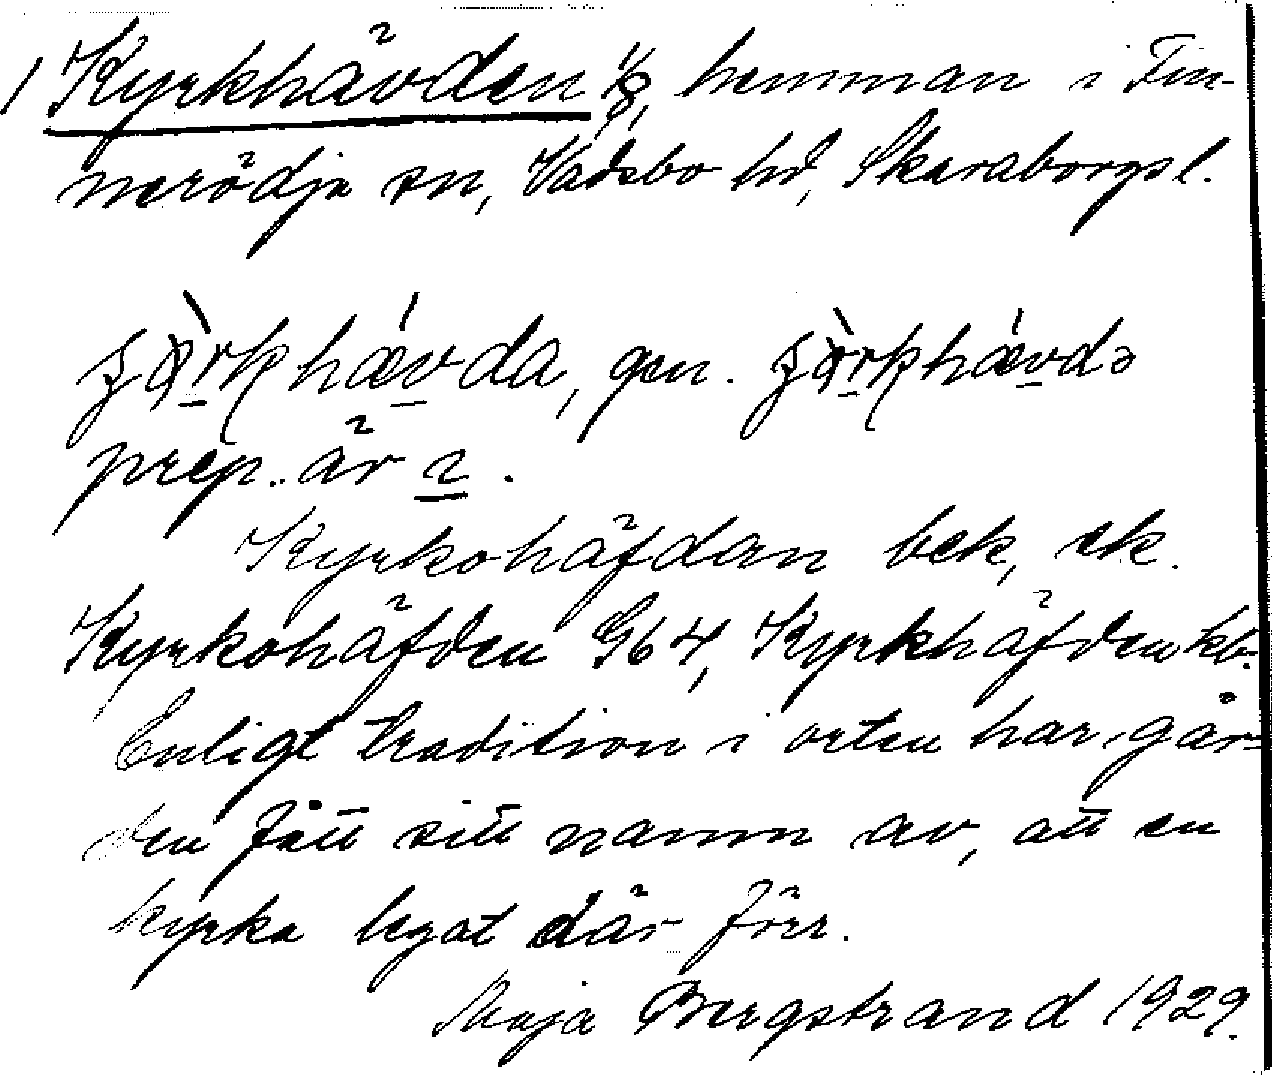 1 Kyrkhävden 1/8, hemman i Fin-
nerödja sn, Vadsbo hd, Skaraborgsl.
hævda, gen.
prep. är i.
Kyrkohäfdan bek, sk.
Kyrkohäfden G64, Kyrkhäfden kb.
Enligt tradition i orten har går-
den fått sitt namn av, att en
kyrka legat där förr.
Maja Bergstrand 1929.